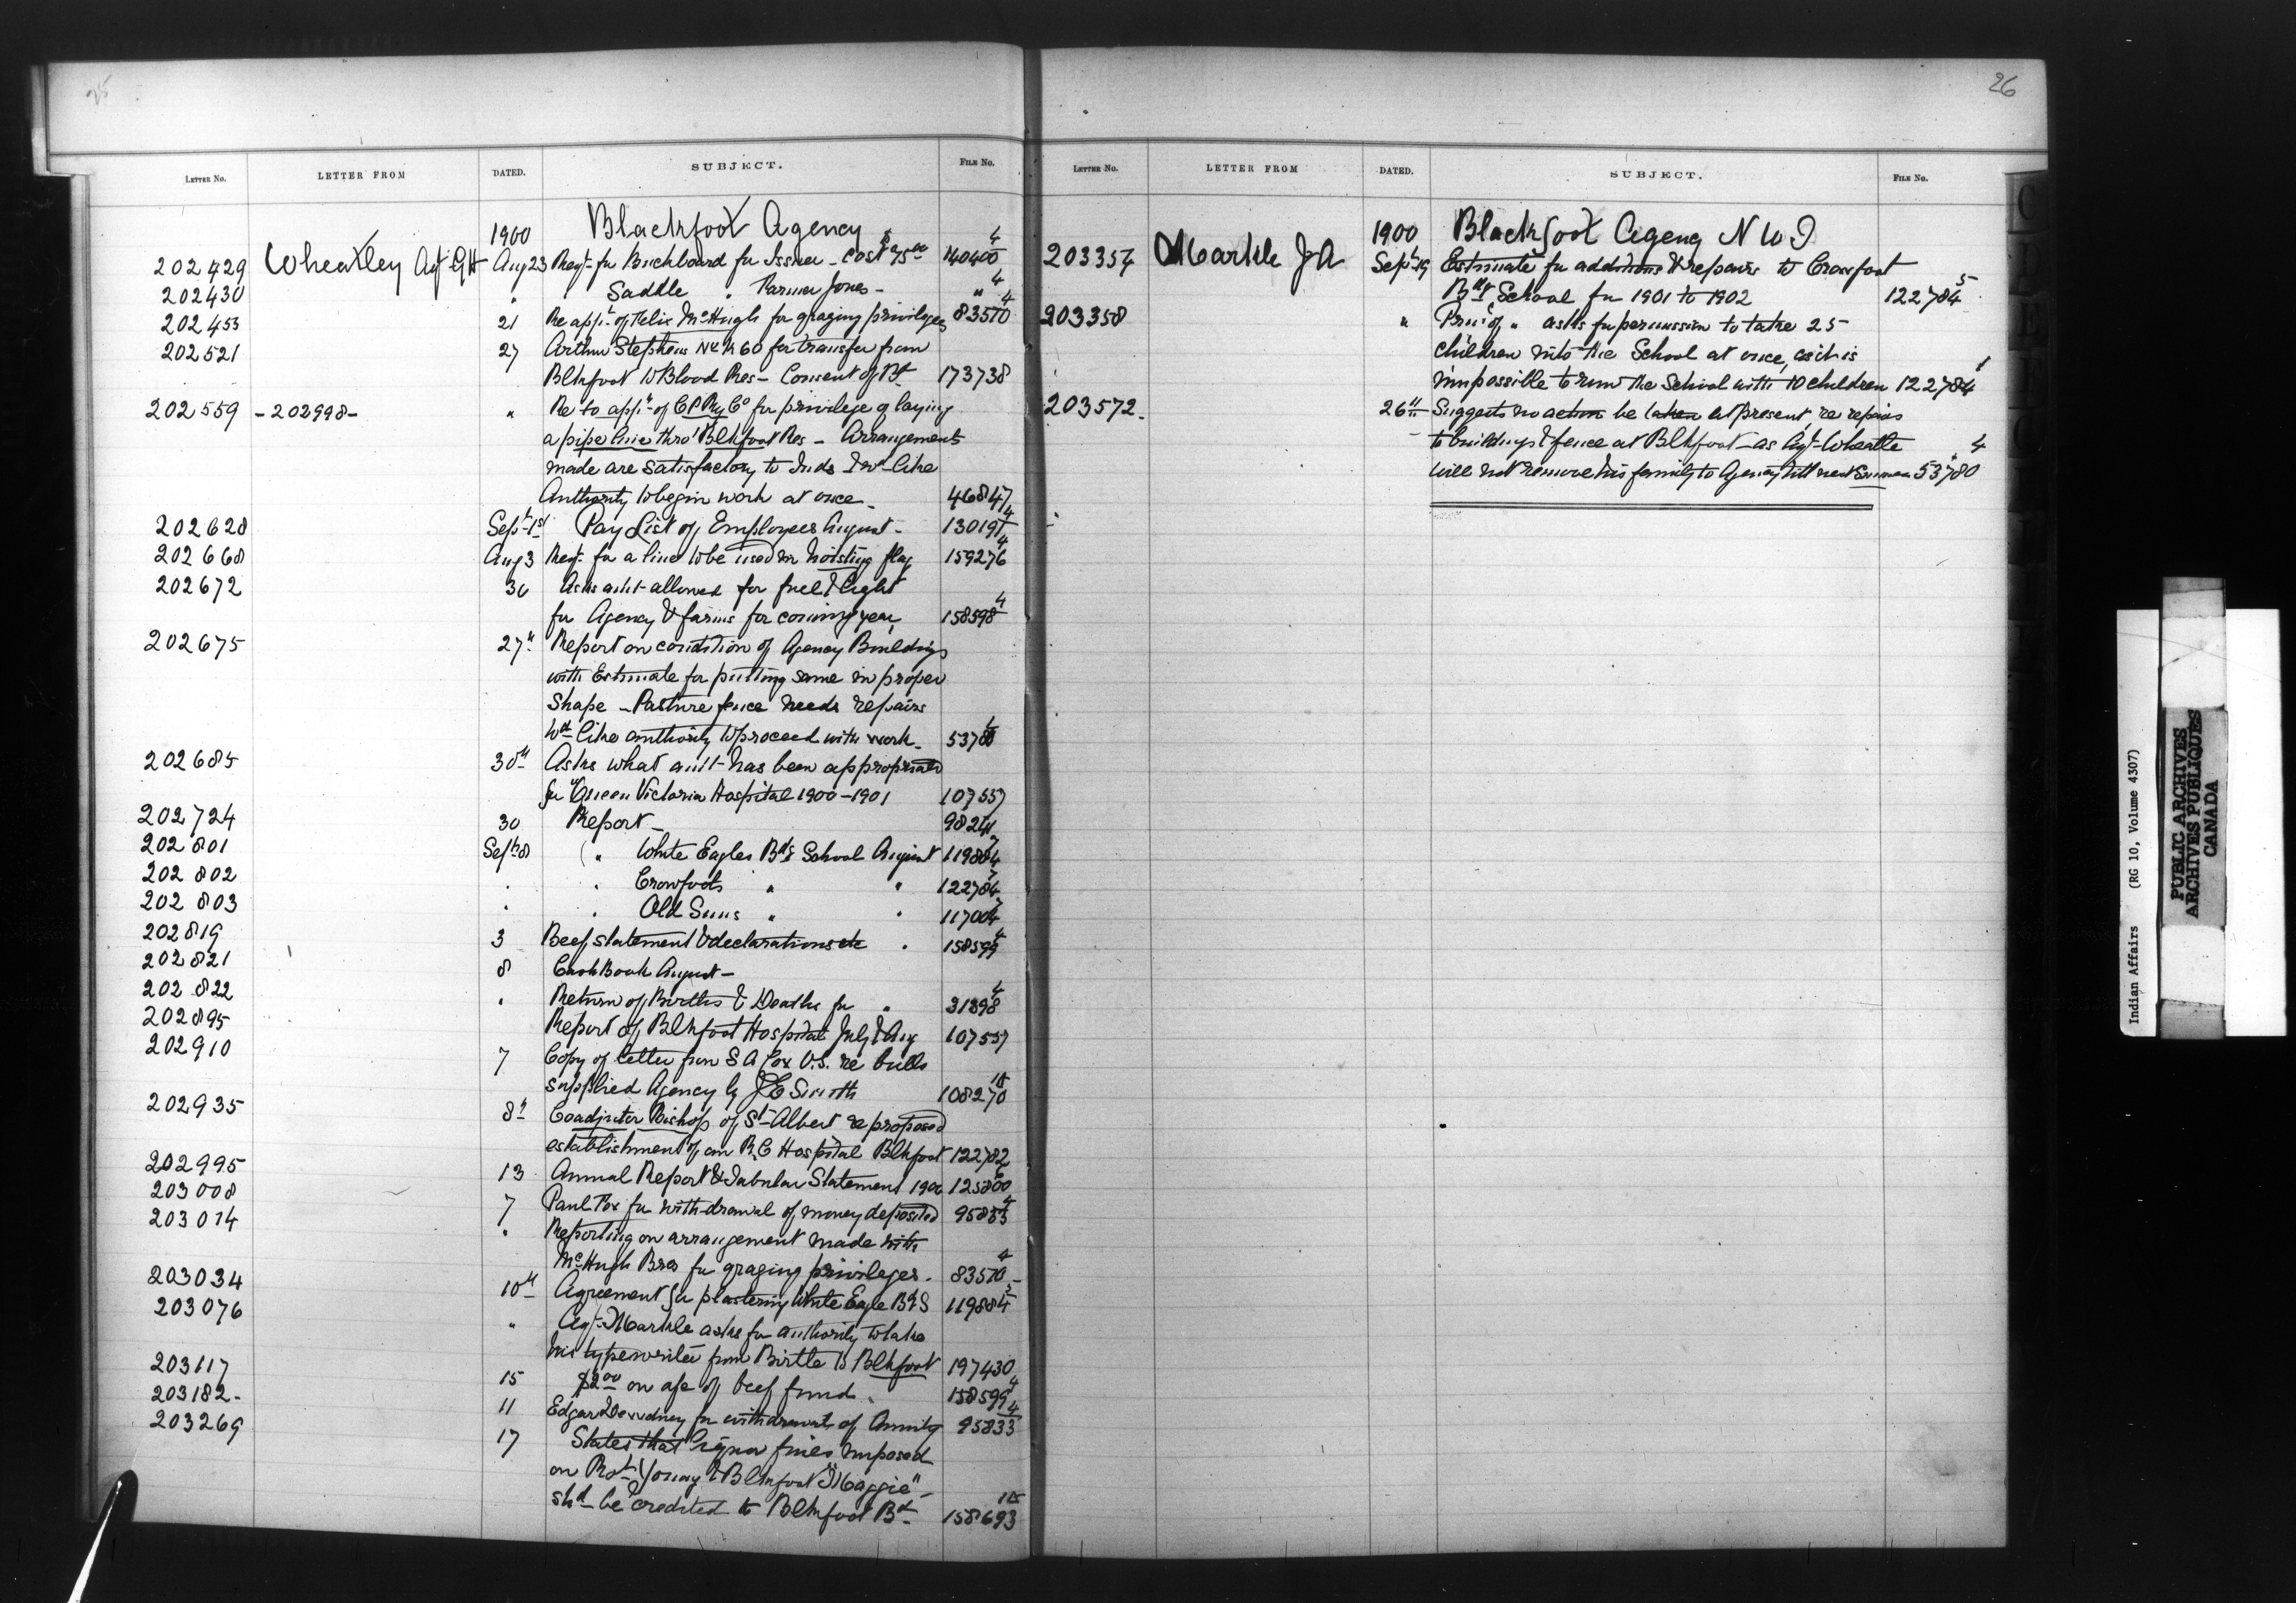 25
LETTER No. LETTER FROM DATED. SUBJECT. FILE No.
1900 Blackfoot Agency
202429 Wheatley Agt GH Aug 23 Reqt. fr Buckboard fr Issuer - Cost $75.00 140400/4
202430 " " Saddle " Farmer Jones - " 4
202453 21 Re appt. of Felix McHugh for grazing privileges 83570/4
202521 27 Arthur Stephens No. 60 for transfer from
Blkfoot to Blood Res - Consent of Bd 173738
202559 - 202998 - " Re to appn. of C P Ry Co for privilege of laying
a pipe line thro' Blkfoot Res - Arrangements
made are satisfactory to Inds & wd like
Authority to begin work at once - 46847
202628 Sept 1st Pay List of Employees August - 130191/4
202668 Aug 3 Reqt. for a line to be used in hoisting flag 159276/4
202672 30 Asks amt allowed for fuel & light
for Agency & farms for coming year 158598/4
202675 27th Report on condition of Agency Buildings
with Estimate for putting same in proper
shape - Pasture fence needs repairs
Wd like authority to proceed with work - 53780/4
202685 30th Asks what amt has been appropriated
for Queen Victoria Hospital 1900-1901 107557
202724 30 Report - 98241
202801 Sept 8 " White Eagles Bdg School August 119884
202802 " " Crowfoots " " 122784
202803 " " Old Suns " " 117004
202819 3 Beef statement & declarations etc " 158599/4
202821 8 Cash Book August -
202822 " Return of Births & Deaths for " 31398/4
202895 Report of Blkfoot Hospital July & Aug 107557
202910 7 Copy of letter from S A Cox V.S. re bulls
supplied Agency by J E Smith 108270
202935 8th Coadjutor Bishop of St Albert re proposed
establishment of an R.C Hospital Blkfoot 122782
202995 13 Annual Report & Tabular Statement 1900 125800
203008 7 Paul Fox for withdrawal of money deposited 95833/4
203014 " Reporting on arrangement made with
McHugh Bros for grazing privileges. 83570/4
203034 10th Agreement for plastering White Eagle Bdg S 119884/5
203076 " Agt. Markle asks for authority to take
his typewriter from Birtle to Blkfoot 197430
203117 15 $2.00 on a/c of beef fund. 158599/4
203182 - 11 Edgar Dewdney for withdrawal of Annuity 95833/4
203269 17 States that liquor fines imposed
on Robt. Young & Blkfoot "Maggie" -
shd be credited to Blkfoot Bd 158693
26
LETTER No. LETTER FROM DATED. SUBJECT. FILE No.
1900 Blackfoot Agency N W T
203357 Markle J A Sept 19 Estimate for additions & repairs to Crowfoot
Bdg School for 1901 to 1902 122784/5
203358 " Prinl of " asks for permission to take 25
children into the School at once, as it is
impossible to run the School with 10 children 122784/1
203572 - 26th Suggests no action be taken at present, re repairs
to buildings & fence at Blkfoot - as Agt. Wheatle
will not remove his family to Agency till next Summer 53780/4
Indian Affairs (RG 10, Volume 4307)
PUBLIC ARCHIVES
ARCHIVES PUBLIQUES
CANADA